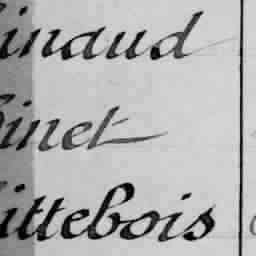 inaud
inet
ittebois